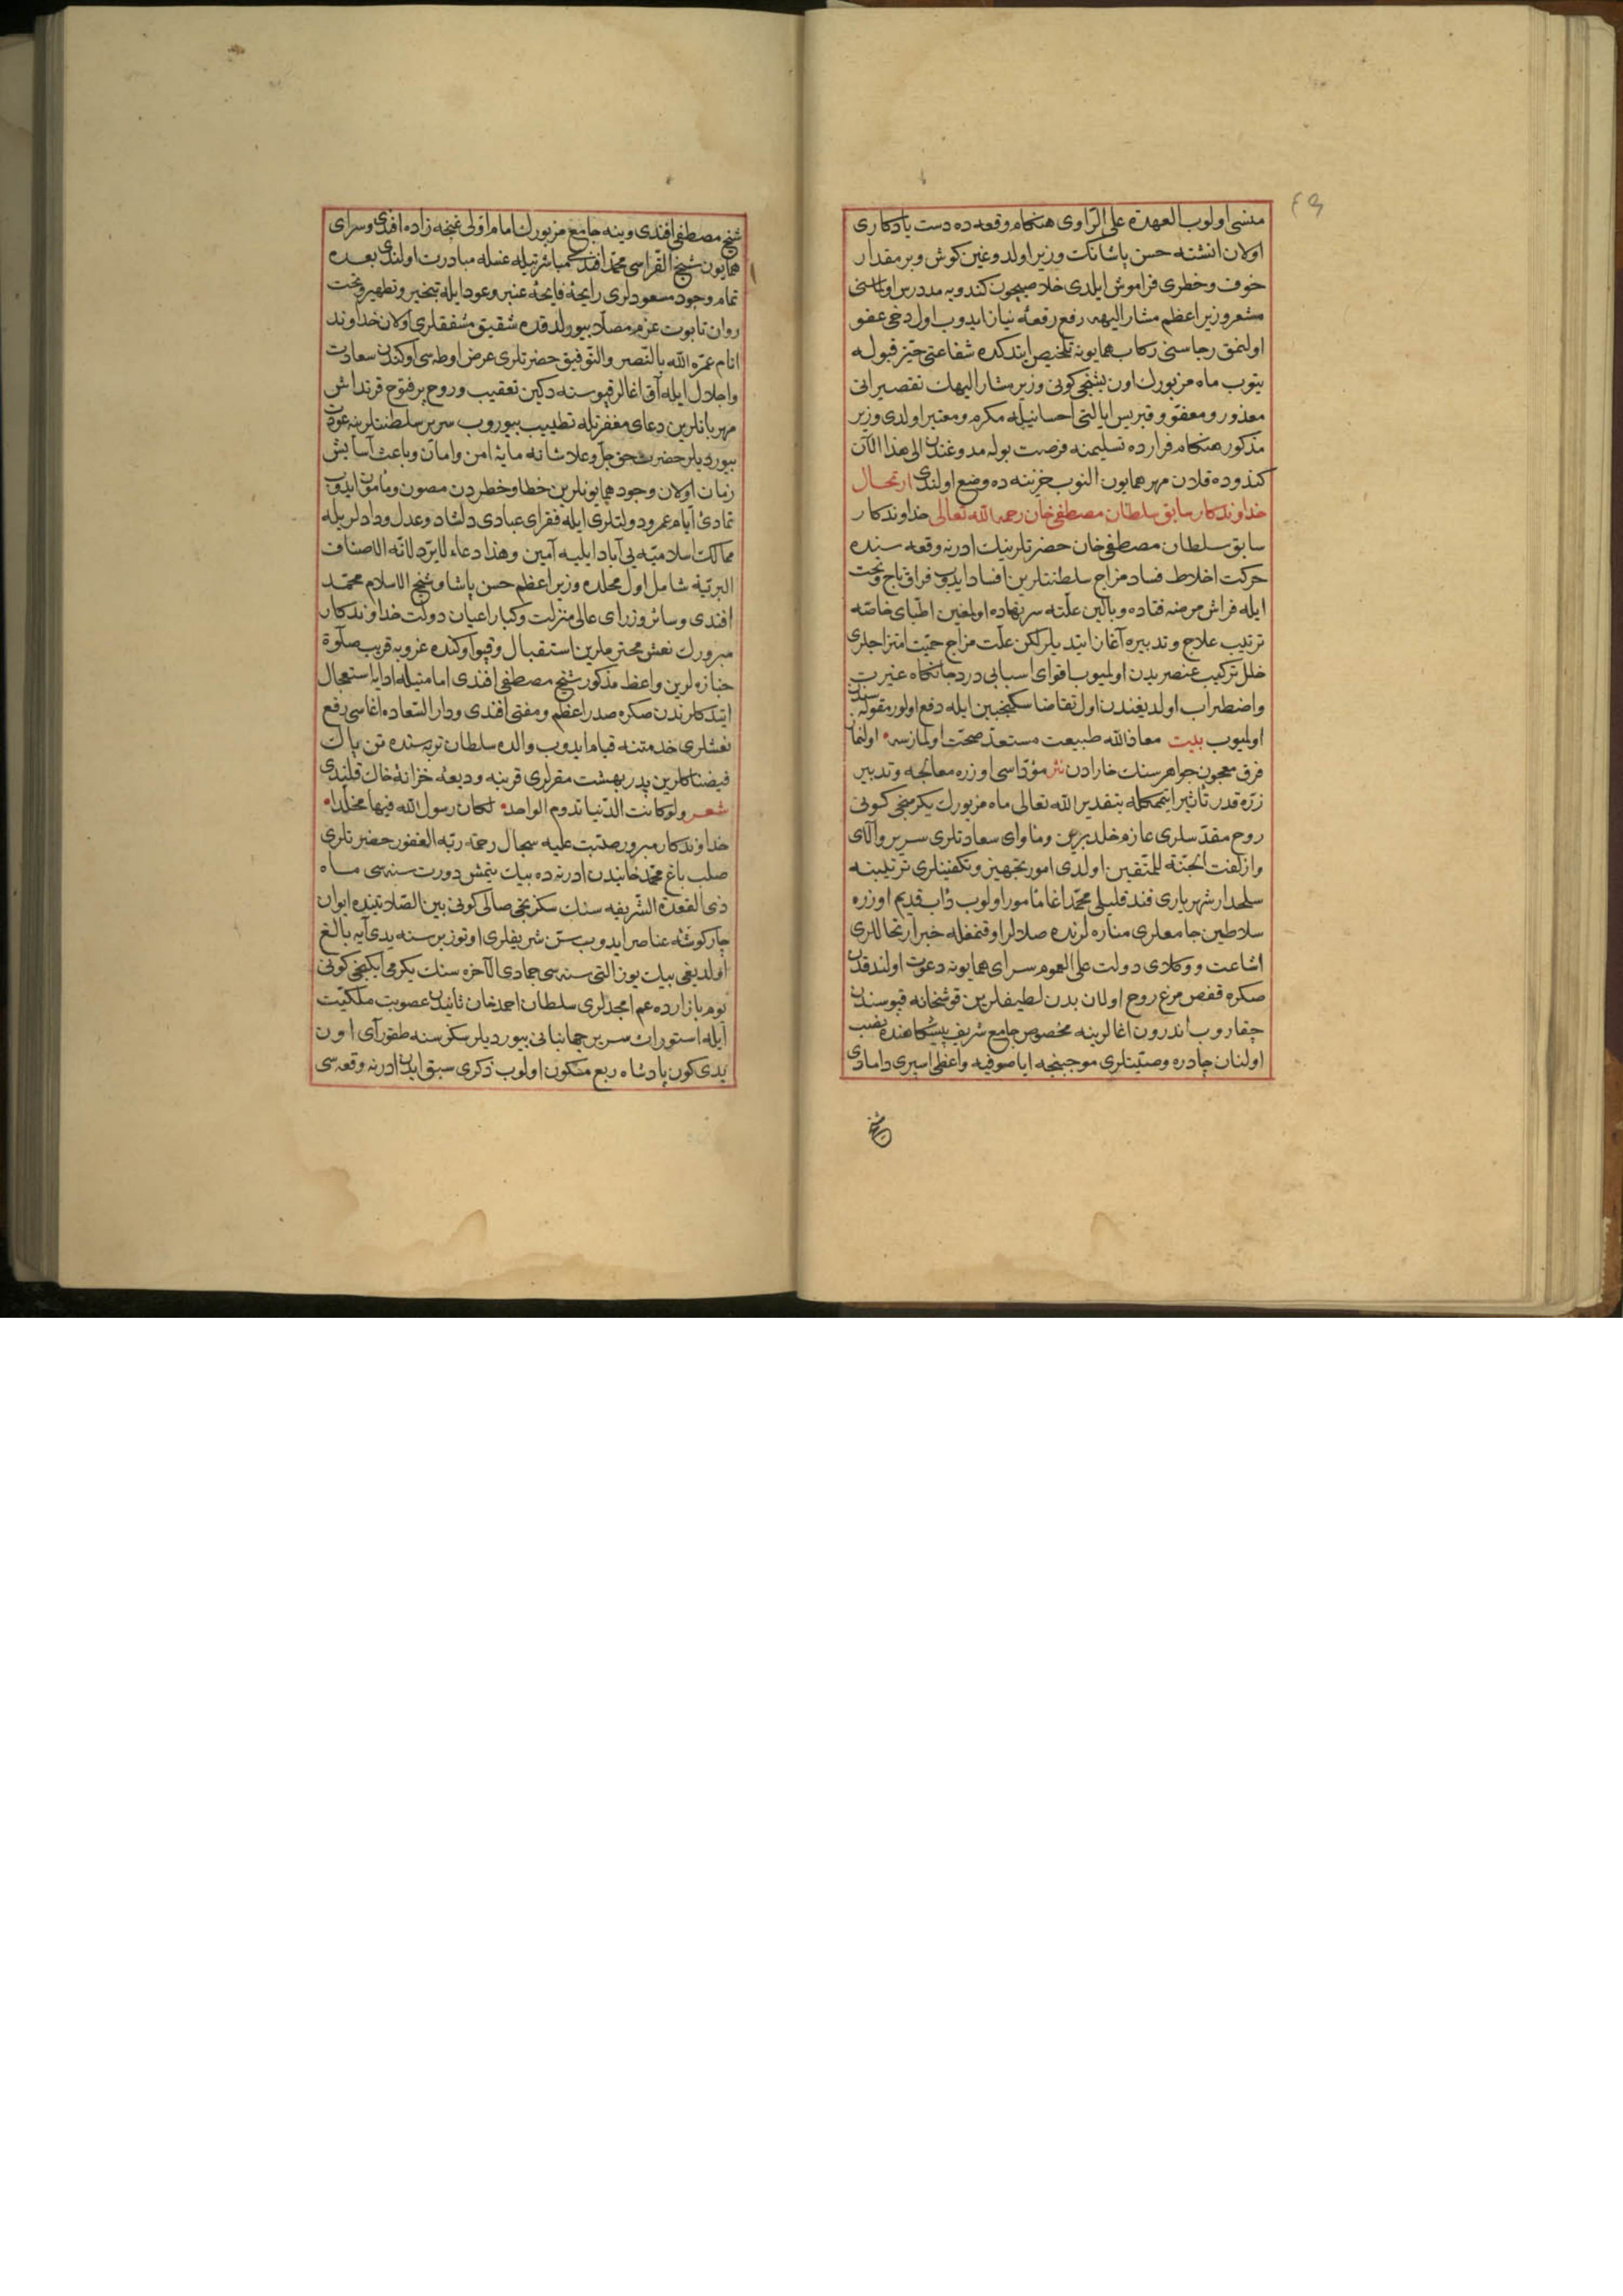 ٤٩
منسی اولوب العهدة علی الرّاوی هنكام وقعه‌ده دست یادكاری
اولان انشته حسن پاشانك وزیر اولدوغین كوش و بر مقدار
خوف و خطری فراموش ایلدی خلاصیچون كندویه مددرس اولماسنی
مشعر وزیر اعظم مشار الیهه رفع رقعهٔ نیاز ایدوب اول دخی عفو
اولنمق رجاسنی ركاب همایونه تلخیص ایتدكده شفاعتی حیّز قبوله
یتوب ماه مزبورك اون بشنجی كونی وزیر مشار الیهك تقصیراتی
معذور و معفوّ و قبریس ایالتی احسانیله مكرم و معتبر اولدی وزیر
مذكور هنكام فرارده تسلیمنه فرصت بوله مدوغندن الی هذا الآن
كندوده قلان مهر همایون النوب خزینه ده وضع اولندی ارتحال
خداوندكار سابق سلطان مصطفی خان رحمه الله تعالی خداوندكار
سابق سلطان مصطفی خان حضرتلرینك ادرنه وقعه سنده
حركت اخلاط فساد مزاج سلطنتلرین افساد ایدوب فراق تاج و تخت
ایله فراش مرضه فتاده و بالین علّته سر نهاده اولمغین اطبای خاصّه
ترتیب علاج و تدبیره آغاز ایتدیلر لكن علّت مزاج حمیّت امتزاجلری
خلل تركیب عنصر بدن اولمیوب اقوای اسبابی درد جانكاه غیرت
و اضطراب اولدیغندن اول تقاضا سكنجبین ایله دفع اولور مقوله سندن
اولمیوب بیت معاذ الله طبیعت مستعدّ صحّت اولمازسه اولنماز
فرق معجون جواهر سنك خارادن نثر مؤدّاسی اوزره معالجه و تدبیر
زرّه قدر تأثیر ایتممكله بتقدیر الله تعالی ماه مزبورك یكرمنجی كونی
روح مقدّسلری عازم خلد برین و مأوای سعادتلری سریر والای
وازلفت الجنّة للمتّقین اولدی امور تجهیز و تكفینلری ترتیبنه
سلحدار شهریاری فندقلیلی محمّد اغا مأمور اولوب دأب قدیم اوزره
سلاطین جامعلری مناره لرنده صلالر اوقنمغله خبر ارتحاللری
اشاعت و وكلای دولت علی العموم سرای همایونه دعوت اولندقدن
صكره قفص مرغ روح اولان بدن لطیفلرین قوشخانه قپوسندن
چقاروب اندرون اغالرینه مخصوص جامع شریف پیشكاهنده نصب
اولنان چادره وصیّتلری موجبنجه ایاصوفیه واعظی اسپری دامادی
شیخ
شیخ مصطفی افندی و ینه جامع مزبورك امام اوّلی غنچه زاده افندی و سرای
همایون شیخ القرّاسی محمّد افندی مباشرتیله غسله مبادرت اولندی بعده
تمام وجود مسعودلری رایحهٔ فایحهٔ عنبر و عود ایله تبخیر و تطهیر و تخت
روان تابوت عزم مصلّا بیورلدقده شقیق مشفقلری اولان خداوند
انام عمّره الله بالنّصر والتّوفیق حضرتلری عرض اوطه سی اوكندن سعادت
و اجلال ایله آق اغالر قپوسنه دكین تعقیب و روح پرفتوح قرنداش
مهربانلرین دعای مغفرتله تطییب بیوروب سریر سلطنتلرینه عودت
بیوردیلر حضرت حق جلّ و علا شانه مایهٔ امن و امان و باعث آسایش
زمان اولان وجود همایونلرین خطا و خطردن مصون و مأمون ایدوب
تمادئ ایّام عمر و دولتلری ایله فقرای عبادی دلشاد و عدل و دادلریله
ممالك اسلامیّه یی آباد ایلیه آمین وهذا دعاء لایردّ لانّه لاصناف
البریّة شامل اول محلده وزیر اعظم حسن پاشا و شیخ الاسلام محمّد
افندی و سائر وزرای عالی منزلت و كبار اعیان دولت خداوندكار
مبرورك نعش محترملرین استقبال و قپو اوكنده غروبه قریب صلوة
جنازه لرین واعظ مذكور شیخ مصطفی افندی امامتیله ادایه استعجال
ایتدكلرندن صكره صدر اعظم و مفتی افندی و دار السّعاده اغاسی رفع
نعشلری خدمتنه قیام ایدوب والده سلطان تربه سنده تن پاك
فیضناكلرین پدر بهشت مقرلری قربنه ودیعهٔ خزانهٔ خاك قلیندی
شعر ولو كانت الدّنیا تدوم الواحد لكان رسول الله فیها مخلّدا
خداوندكار مبرور صبّت علیه سجال رحمة ربّه الغفور حضرتلری
صلب باغ محمّد خانیدن ادرنه ده بیك یتمش دورت سنه سی ماه
ذی القعدة الشّریفه سنك سكزنجی صالی كونی بین الصّلاتینده ایوان
چار كوشهٔ عناصر ایدوب سنّ شریفلری اوتوز بر سنه یدی آیه بالغ
اولدیغی بیك یوز التی سنه سی جمادی الآخره سنك یكرمی ایكنجی كونی
یوم بازارده عم امجدلری سلطان احمد خان ثانیدن عصوبت ملكیّت
ایله استوران سریر جهانبانی بیوردیلر سكز سنه طقوز آی اون
یدی كون پادشاه ربع مسكون اولوب ذكری سبق ایدن ادرنه وقعه سی